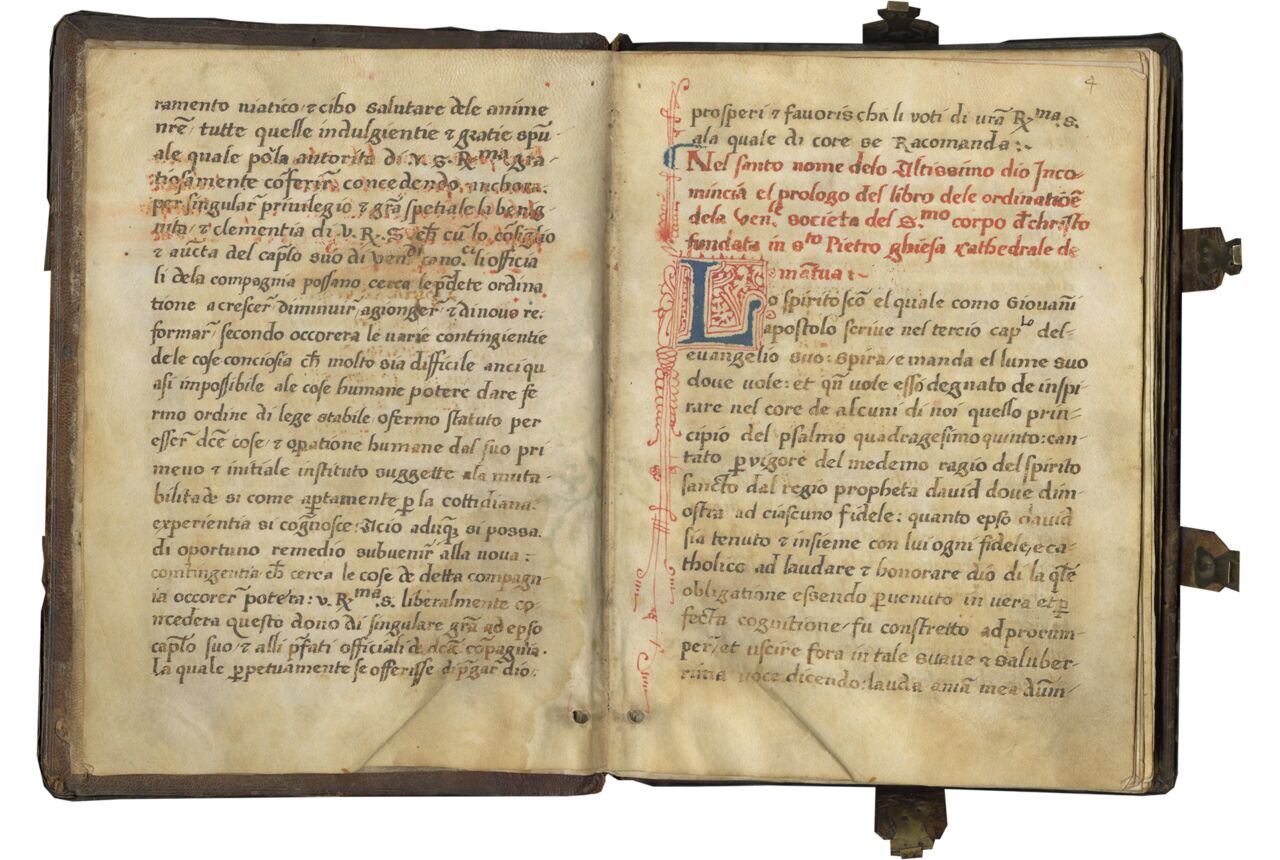 ramento uiatico ⁊ cibo salutare dele anime
nrē tutte quelle indulgientie ⁊ gratie spũ
ale quale pol̃a autorita di V. S. Rma gra
tiosamente cõferir̃ concedendo anchora.
per singular priuilegio ⁊ grã spetiale la benig
nita ⁊ clementia di v. R. S. ch̃ cũ lo cõsiglio
⁊ aucta del caplo suo di ven.di cono.ci li officia
li dela compagnia possano cerca le p̃dete ordina
tione acrescer̃ diminuir̃ agionger̃ ⁊ dinouo re:
formar̃ secondo occorera le uarie contingientie
dele cose conciosia ch̃ molto sia difficile anci qu
asi impossibile ale cose humane potere dare fe
rmo ordine di lege stabile ofermo statuto per
esser̃ dcē cose ⁊ oꝑatione humane dal suo pri
meuo ⁊ initiale instituto suggette ala muta-
bilitade si come aꝑtamente ꝑ la cottidiana
experientia si cognosce: Acio adũqꝫ si possa
di oportuno remedio subuenir̃ alla noua:
contingentia ch̃ cerca le cose de detta compagn-
ia occorer̃ poteta: v. Rma. S. liberalmente co-
ncedera questo dono di singulare grã ad epso
caplo suo ⁊ alli p̃fati officiali de dcã cõpagnia.
La quale ꝑpetuamente se offerisse di p̃gar̃ dio.
4
prosperi ⁊ fauorischa li voti di vrã Rma. S.
ala quale di core se Racomanda:.
Nel santo nome delo Altissimo dio Inco-
mincia el prologo del libro dele ordinatiõe
dela Ven.le societa del S.mo corpo d'christo
fundata in sto Pietro ghiesa cathedrale de
mãtua:~
Lo spirito scõ el quale como Giouañi
apostolo scriue nel tercio cap.lo del-
euangelio suo: spira / e manda el lume suo
doue uole: et qñ uole esso degnato de inspi-
rare nel core de alcuni di noi quello prin-
cipio del psalmo quadragesimoquinto: can-
tato ꝑ vigore del medemo ragio del spirito
sancto dal regio propheta dauid doue dim-
ostra ad ciascuno fidele: quanto epso dauid
sia tenuto ⁊ insieme con lui ogni fidele, e ca-
tholico ad laudare ⁊ honorare dio di la qlẽ
obligatione essendo ꝑuenuto in uera et ꝑ
fecta cognitione / fu constretto ad prorum-
per̃ et uscire fora in tale suaue ⁊ saluber-
rima uoce dicendo: lauda aniã mea dũm-